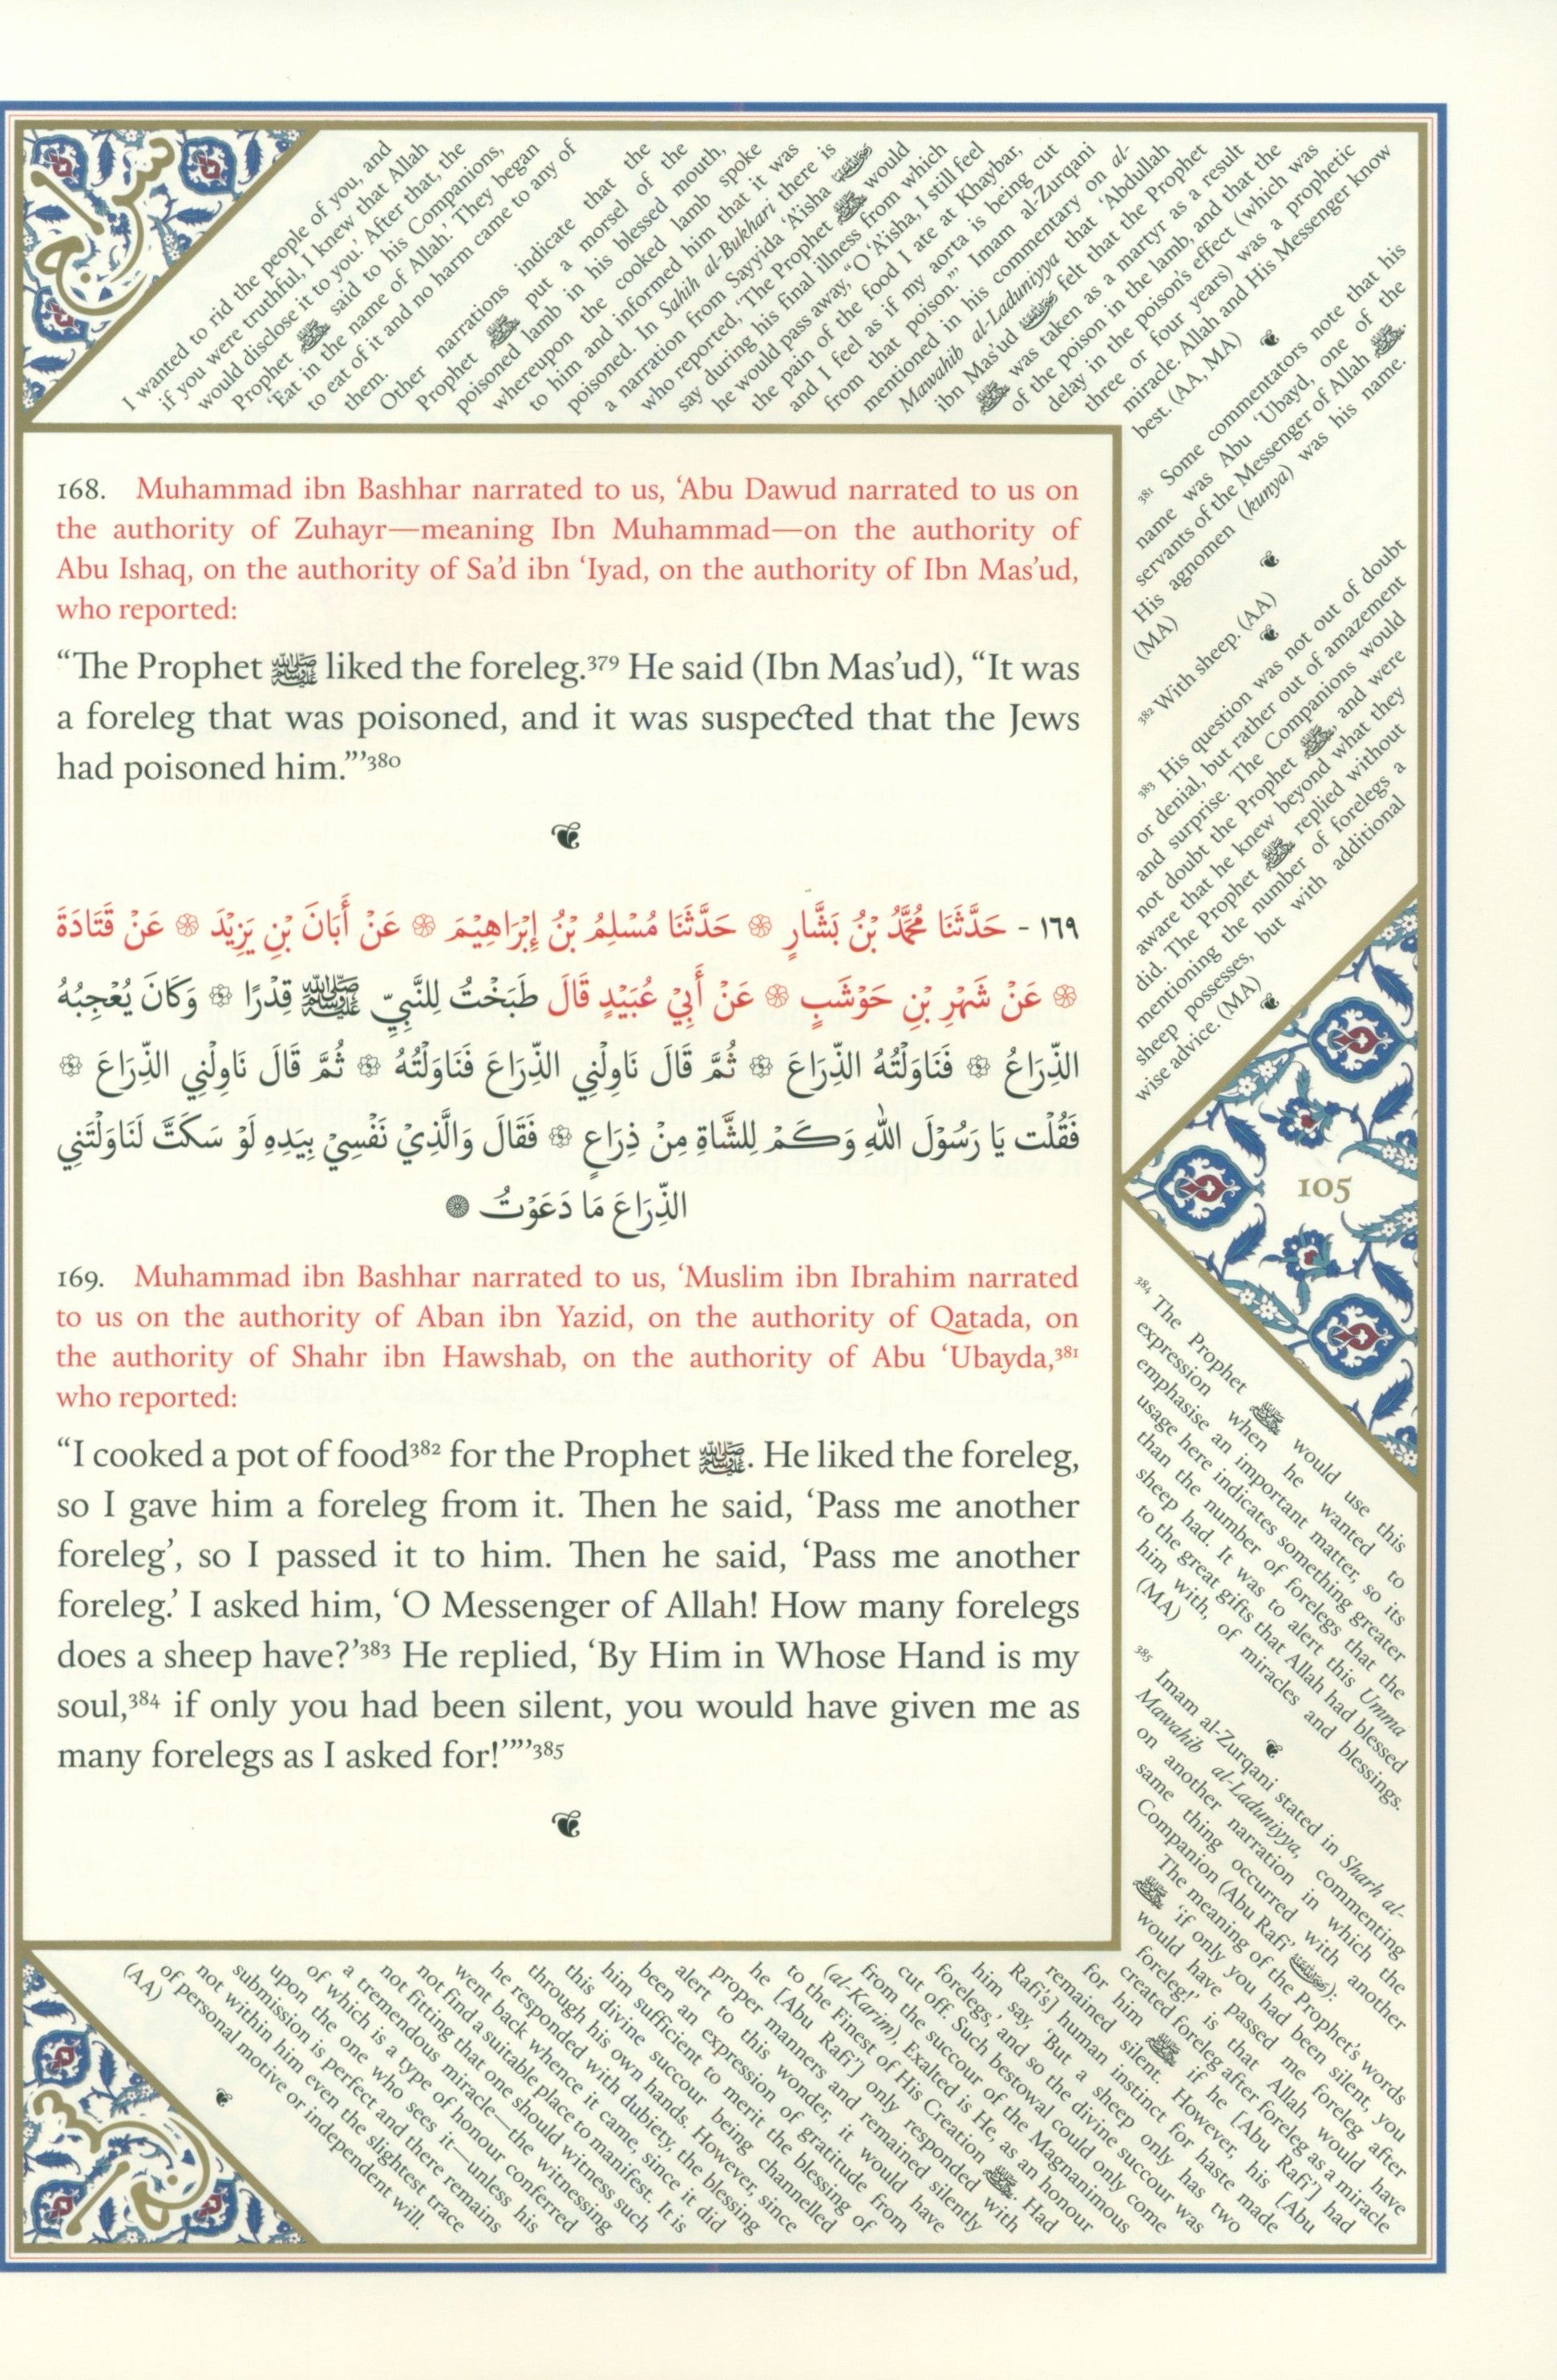 168. Muhammad ibn Bashhar narrated to us, ‘Abu Dawud narrated to us on
the authority of Zuhayr—meaning Ibn Muhammad—on the authority of
Abu Ishaq, on the authority of Sa’d ibn ‘Iyad, on the authority of Ibn Mas’ud,
who reported:
“The Prophet ﷺ liked the foreleg.³⁷⁹ He said (Ibn Mas’ud), “It was
a foreleg that was poisoned, and it was suspected that the Jews
had poisoned him.”’³⁸⁰
١٦٩ - حَدَّثَنَا مُحَمَّدُ بْنُ بَشَّارٍ ۞ حَدَّثَنَا مُسْلِمُ بْنُ إِبْرَاهِيْمَ ۞ عَنْ أَبَانَ بْنِ يَزِيْدَ ۞ عَنْ قَتَادَةَ
۞ عَنْ شَهْرِ بْنِ حَوْشَبٍ ۞ عَنْ أَبِيْ عُبَيْدٍ قَالَ طَبَخْتُ لِلنَّبِيِّ ﷺ قِدْرًا ۞ وَكَانَ يُعْجِبُهُ
الذِّرَاعُ ۞ فَنَاوَلْتُهُ الذِّرَاعَ ۞ ثُمَّ قَالَ نَاوِلْنِي الذِّرَاعَ فَنَاوَلْتُهُ ۞ ثُمَّ قَالَ نَاوِلْنِي الذِّرَاعَ ۞
فَقُلْت يَا رَسُوْلَ اللهِ وَكَمْ لِلشَّاةِ مِنْ ذِرَاعٍ ۞ فَقَالَ وَالَّذِيْ نَفْسِيْ بِيَدِهِ لَوْ سَكَتَّ لَنَاوَلْتَنِي
الذِّرَاعَ مَا دَعَوْتُ ۞
169. Muhammad ibn Bashhar narrated to us, ‘Muslim ibn Ibrahim narrated
to us on the authority of Aban ibn Yazid, on the authority of Qatada, on
the authority of Shahr ibn Hawshab, on the authority of Abu ‘Ubayda,³⁸¹
who reported:
“I cooked a pot of food³⁸² for the Prophet ﷺ. He liked the foreleg,
so I gave him a foreleg from it. Then he said, ‘Pass me another
foreleg’, so I passed it to him. Then he said, ‘Pass me another
foreleg.’ I asked him, ‘O Messenger of Allah! How many forelegs
does a sheep have?’³⁸³ He replied, ‘By Him in Whose Hand is my
soul,³⁸⁴ if only you had been silent, you would have given me as
many forelegs as I asked for!’”’³⁸⁵
I wanted to rid the people of you, and
if you were truthful, I knew that Allah
would disclose it to you.’ After that, the
Prophet ﷺ said to his Companions,
‘Eat in the name of Allah.’ They began
to eat of it and no harm came to any of
them.
Other narrations indicate that the
Prophet ﷺ put a morsel of the
poisoned lamb in his blessed mouth,
whereupon the cooked lamb spoke
to him and informed him that it was
poisoned. In Sahih al-Bukhari there is
a narration from Sayyida ‘A’isha
who reported, ‘The Prophet ﷺ would
say during his final illness from which
he would pass away, “O ‘A’isha, I still feel
the pain of the food I ate at Khaybar,
and I feel as if my aorta is being cut
from that poison.”’ Imam al-Zurqani
mentioned in his commentary on al-
Mawahib al-Laduniyya that ‘Abdullah
ibn Mas’ud felt that the Prophet
ﷺ was taken as a martyr as a result
of the poison in the lamb, and that the
delay in the poison’s effect (which was
three or four years) was a prophetic
miracle. Allah and His Messenger know
best. (AA, MA)
³⁸¹ Some commentators note that his
name was Abu ‘Ubayd, one of the
servants of the Messenger of Allah ﷺ.
His agnomen (kunya) was his name.
(MA)
³⁸² With sheep. (AA)
³⁸³ His question was not out of doubt
or denial, but rather out of amazement
and surprise. The Companions would
not doubt the Prophet ﷺ, and were
aware that he knew beyond what they
did. The Prophet ﷺ replied without
mentioning the number of forelegs a
sheep possesses, but with additional
wise advice. (MA)
105
³⁸⁴ The Prophet ﷺ would use this
expression when he wanted to
emphasise an important matter, so its
usage here indicates something greater
than the number of forelegs that the
sheep had. It was to alert this Umma
to the great gifts that Allah had blessed
him with, of miracles and blessings.
(MA)
³⁸⁵ Imam al-Zurqani stated in Sharh al-
Mawahib al-Laduniyya, commenting
on another narration in which the
same thing occurred with another
Companion (Abu Rafi’):
The meaning of the Prophet’s words
ﷺ ‘if only you had been silent, you
would have passed me foreleg after
foreleg!’ is that Allah would have
created foreleg after foreleg as a miracle
for him ﷺ if he [Abu Rafi’] had
remained silent. However, his [Abu
Rafi’s] human instinct for haste made
him say, ‘But a sheep only has two
forelegs,’ and so the divine succour was
cut off. Such bestowal could only come
from the succour of the Magnanimous
(al-Karim), Exalted is He, as an honour
to the Finest of His Creation ﷺ. Had
he [Abu Rafi’] only responded with
proper manners and remained silently
alert to this wonder, it would have
been an expression of gratitude from
him sufficient to merit the blessing of
this divine succour being channelled
through his own hands. However, since
he responded with dubiety, the blessing
went back whence it came, since it did
not find a suitable place to manifest. It is
not fitting that one should witness such
a tremendous miracle—the witnessing
of which is a type of honour conferred
upon the one who sees it—unless his
submission is perfect and there remains
not within him even the slightest trace
of personal motive or independent will.
(AA)